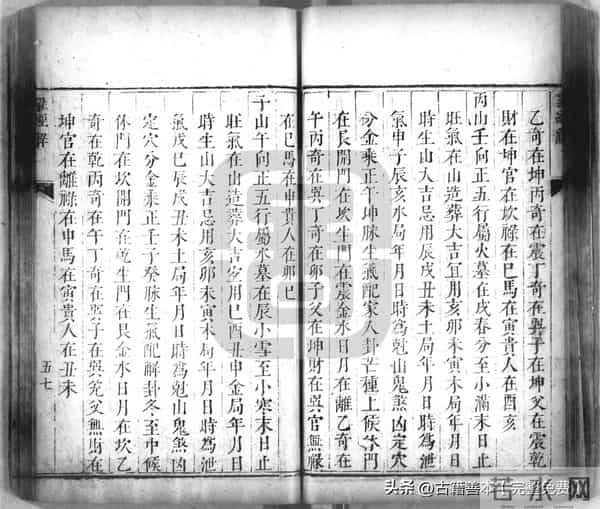 乙奇在坤丙奇在震丁奇在巽子在坤父在震乾
財在坤官在坎祿在巳馬在寅貴人在酉亥
丙山壬向正五行屬火墓在戌春分至小滿末日止
旺氣在山造葬大吉宜用亥卯未寅木局年月日
時生山大吉忌用辰戌丑未土局年月日時爲洩
氣申子辰亥水局年月日時爲尅山鬼煞凶定穴
分金乘正午坤脉生氣配家人卦芒種上候休門
在艮開門在坎生門在震金水日月在離乙奇在
午丙奇在巽丁奇在卯子父在坤財在巽官無祿
在巳馬在申貴人在卯巳
子山午向正五行屬水墓在辰小雪至小寒末日止
旺氣在山造葬大吉宜用巳酉丑申金局年月日
時生山大吉忌用亥卯未寅木局年月日時爲泄
氣戊巳辰戌丑未土局年月日時爲尅山鬼煞凶
定穴分金乘正壬子癸脉生氣配解卦冬至中候
休門在坎開門在乾生門在艮金水日月在坎乙
奇在乾丙奇在午丁奇在巽子在巽兌父無財在
坤官在離祿在申馬在寅貴人在丑未
羅經解
五七
头条 @古籍善本